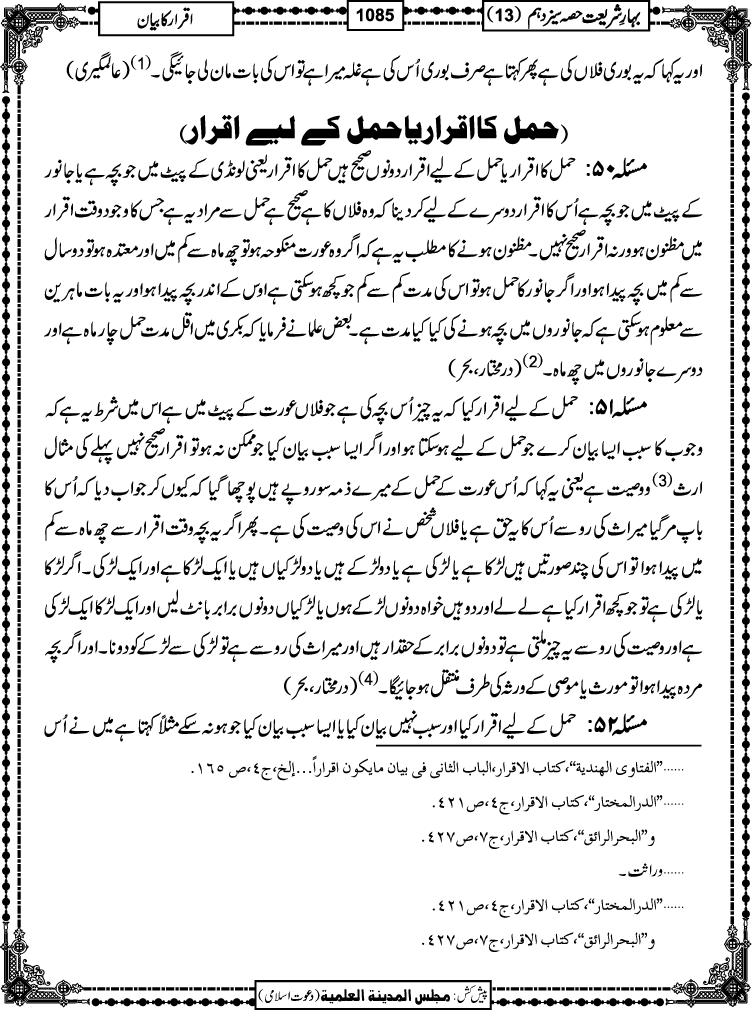 بہارِ شریعت حصہ سیزدہم (13)
1085
اقرار کا بیان
اور یہ کہا کہ یہ بوری فلاں کی ہے پھر کہتا ہے صرف بوری اُس کی ہے غلہ میرا ہے تو اس کی بات مان لی جائیگی۔(1) (عالمگیری)
(حمل کا اقرار یا حمل کے لیے اقرار)
مسئلہ ۵۰: حمل کا اقرار یا حمل کے لیے اقرار دونوں صحیح ہیں حمل کا اقرار یعنی لونڈی کے پیٹ میں جو بچہ ہے یا جانور
کے پیٹ میں جو بچہ ہے اُس کا اقرار دوسرے کے لیے کر دینا کہ وہ فلاں کا ہے صحیح ہے حمل سے مراد یہ ہے جس کا وجود وقت اقرار
میں مظنون ہو ورنہ اقرار صحیح نہیں۔ مظنون ہونے کا مطلب یہ ہے کہ اگر وہ عورت منکوحہ ہو تو چھ ماہ سے کم میں اور معتدہ ہو تو دو سال
سے کم میں بچہ پیدا ہوا اور اگر جانور کا حمل ہو تو اس کی مدت کم سے کم جو کچھ ہو سکتی ہے اوس کے اندر بچہ پیدا ہوا اور یہ بات ماہرین
سے معلوم ہو سکتی ہے کہ جانوروں میں بچہ ہونے کی کیا کیا مدت ہے۔ بعض علما نے فرمایا کہ بکری میں اقل مدت حمل چار ماہ ہے اور
دوسرے جانوروں میں چھ ماہ۔(2) (درمختار، بحر)
مسئلہ ۵۱: حمل کے لیے اقرار کیا کہ یہ چیز اُس بچہ کی ہے جو فلاں عورت کے پیٹ میں ہے اس میں شرط یہ ہے کہ
وجوب کا سبب ایسا بیان کرے جو حمل کے لیے ہو سکتا ہو اور اگر ایسا سبب بیان کیا جو ممکن نہ ہو تو اقرار صحیح نہیں پہلے کی مثال
ارث(3) ووصیت ہے یعنی یہ کہا کہ اُس عورت کے حمل کے میرے ذمہ سو روپے ہیں پوچھا گیا کہ کیوں کر جواب دیا کہ اُس کا
باپ مرگیا میراث کی رو سے اُس کا یہ حق ہے یا فلاں شخص نے اس کی وصیت کی ہے۔ پھر اگر یہ بچہ وقت اقرار سے چھ ماہ سے کم
میں پیدا ہوا تو اس کی چند صورتیں ہیں لڑکا ہے یا لڑکی ہے یا دو لڑکے ہیں یا دو لڑکیاں ہیں یا ایک لڑکا ہے اور ایک لڑکی۔ اگر لڑکا
یا لڑکی ہے تو جو کچھ اقرار کیا ہے لے لے اور دو ہیں خواہ دونوں لڑکے ہوں یا لڑکیاں دونوں برابر بانٹ لیں اور ایک لڑکا ایک لڑکی
ہے اور وصیت کی رو سے یہ چیز ملتی ہے تو دونوں برابر کے حقدار ہیں اور میراث کی رو سے ہے تو لڑکی سے لڑکے کو دونا۔ اور اگر بچہ
مردہ پیدا ہوا تو مورث یا موصی کے ورثہ کی طرف منتقل ہو جائیگا۔(4) (درمختار، بحر)
مسئلہ ۵۲: حمل کے لیے اقرار کیا اور سبب نہیں بیان کیا یا ایسا سبب بیان کیا جو ہو نہ سکے مثلاً کہتا ہے میں نے اُس
......"الفتاوی الھندیة"، کتاب الاقرار، الباب الثانی فی بیان مایکون اقراراً...إلخ، ج٤، ص ١٦٥.
......"الدرالمختار"، کتاب الاقرار، ج٤، ص٤٢١.
و"البحرالرائق"، کتاب الاقرار، ج٧، ص٤٢٧.
......وراثت۔
......"الدرالمختار"، کتاب الاقرار، ج٤، ص٤٢١.
و"البحرالرائق"، کتاب الاقرار، ج٧، ص٤٢٧.
پیش کش: مجلس المدینة العلمیة (دعوت اسلامی)